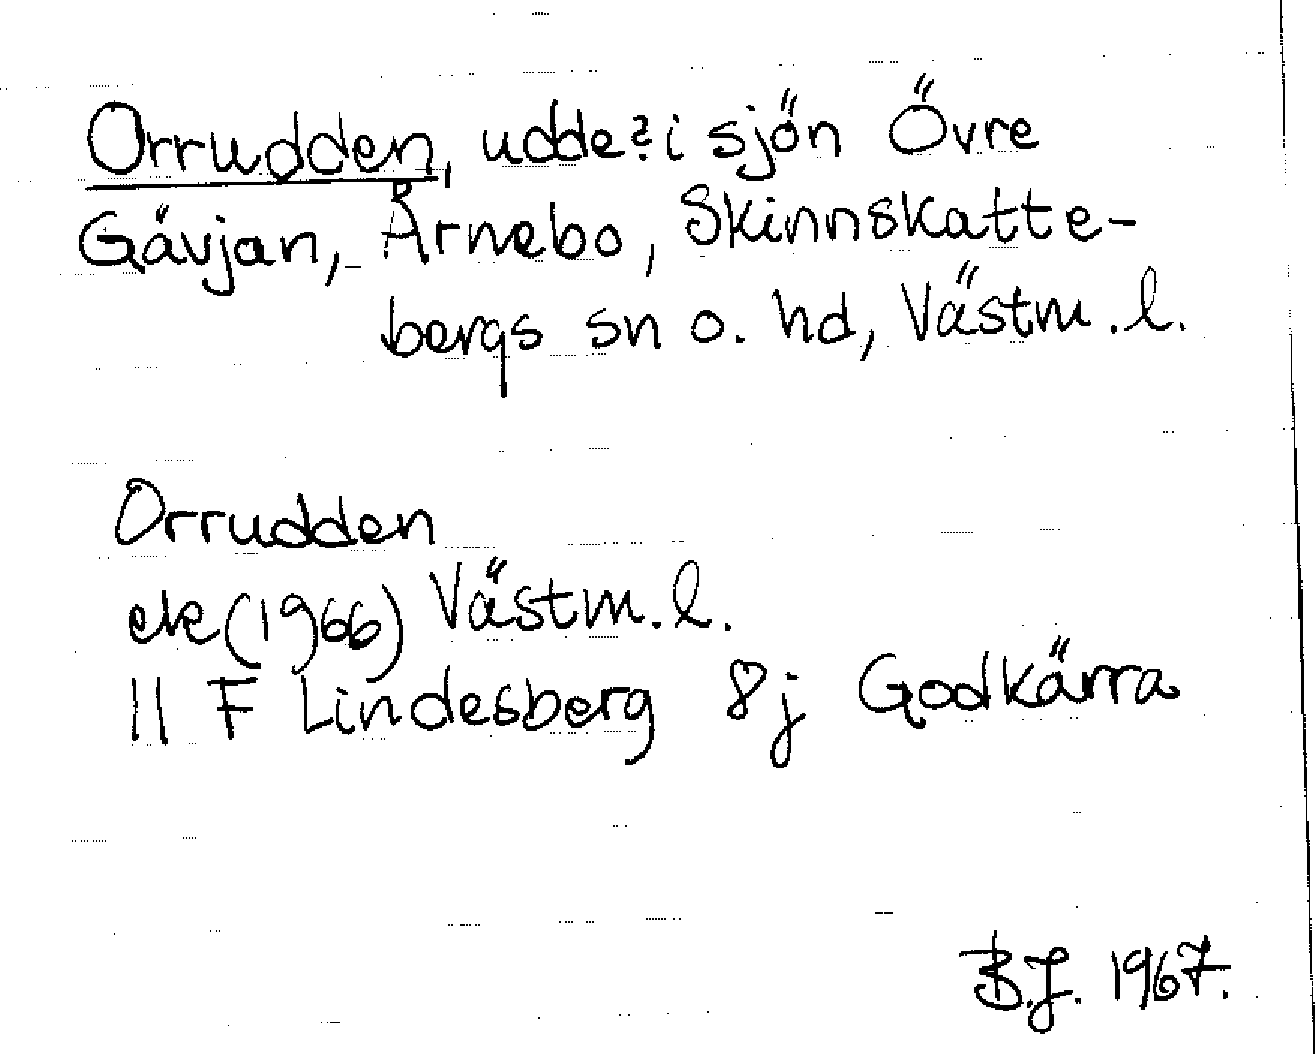 Orrudden, udde? i sjön Övre
Gävjan, Årnebo, Skinnskatte-
bergs sn o. hd, Västm. l.
Orrudden
ek (1966) Västm. l.
11 F Lindesberg 8j Godkärra
B.J. 1967.